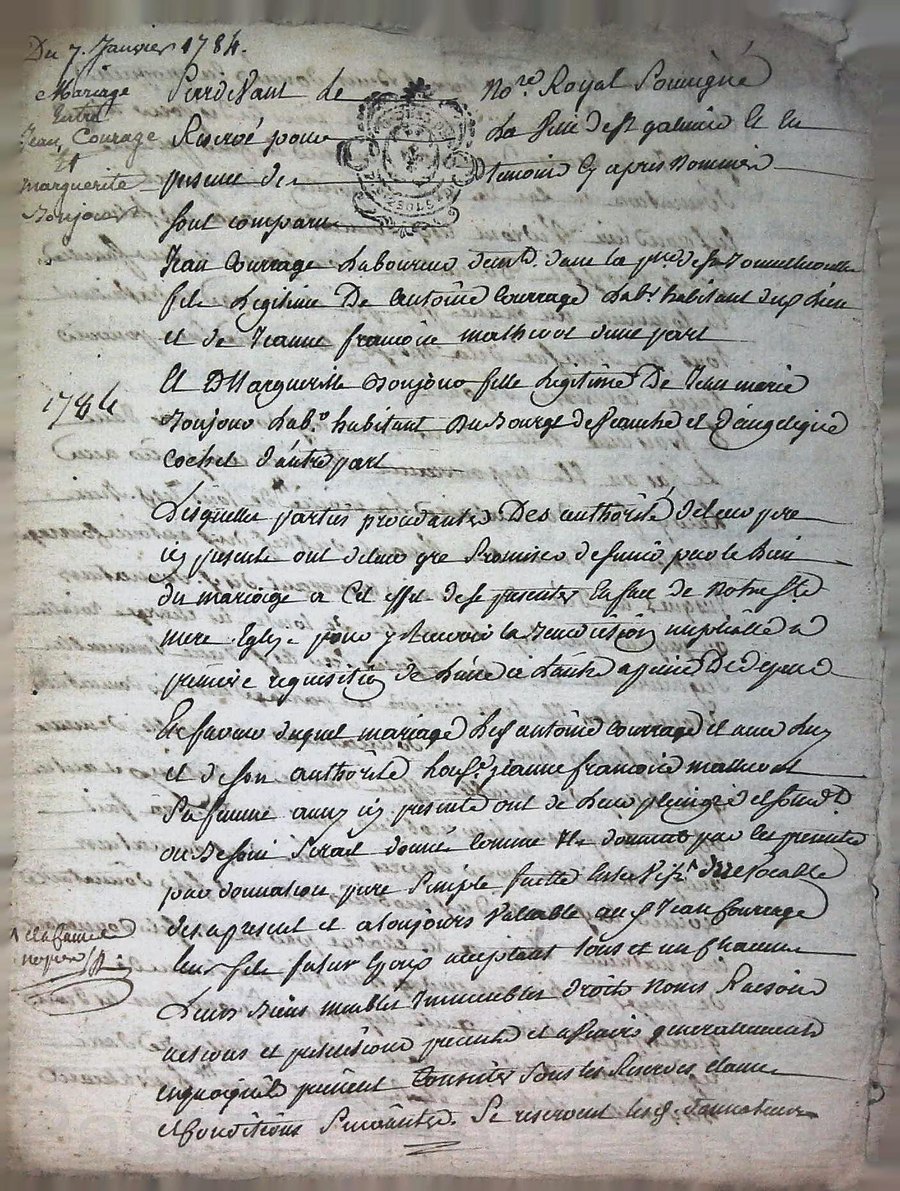 Du 7. Janvier 1784.
Mariage
Entre
Jean Courage
Et
Marguerite
Bonjour
1784
Pardevant le No.re Royal Soussigné
Reservé pour La de St galmier Et en
presence des temoins Cy apres Nommés
sont comparu
Jean Courrage Laboureur demt. dans la pse. de St
fils Legitime De antoine Courrage Labr habitant dud lieu
et de Jeanne francoise mathevot dune part
Et Marguerite Bonjour fille Legitime De Jean marie
Bonjour Labr. habitant Du Bourg de et D'angelique
Cochet D'autre part
Lesquelles parties procedantes Des authorité de leur pere
icy presents ont de leur gre Promis de sunir par le Lien
du mariage a Cet effet de se presenter En face de Notre Ste
mere Eglize pour y Recevoir la Benediction nuptialle a
premiere requisition de L'une a L'autre a peine De depens
En faveur duquel mariage Led antoine Courrage et avec Luy
et de son authorité honse. jeanne francoise mathevot
Sa femme aussy icy presente ont de Leur plein gré
ou Besoin Serait donné comme Ils donnent par les presentes
par donnation pure Simple faitte Entre Vifs Irrevocable
des apresent et atoujours Valable aud Jean Courrage
leur fils futur Epoux acceptant tous et un Chacun
Leurs Biens meubles Immeubles droits Noms Raisons
actions et pretentions presents et avenir generallement
enquoiquils puissent Consister Sous les Reserves clauses
et Conditions Suivantes. Se reservent lesd. donnateurs